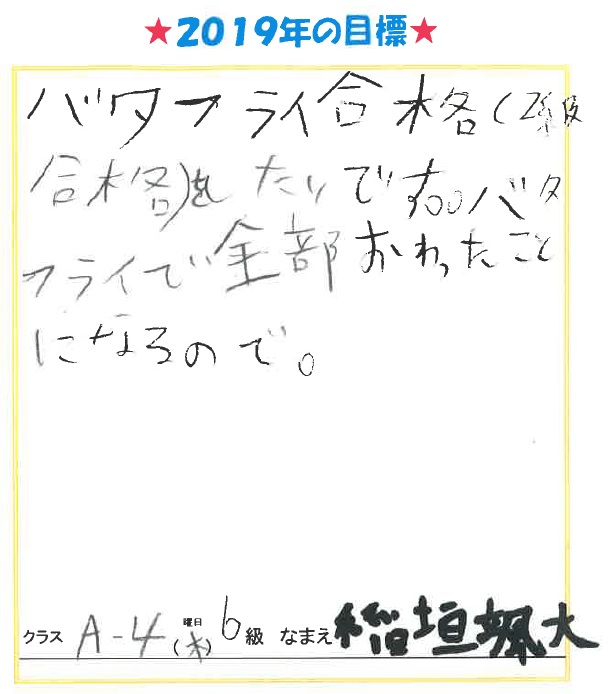 ★2019年の目標★
バタフライ合格(2級
合格)をたいです。。バタ
フライで全部おわったこと
になるので。
クラス A-4 曜日(木) 6級 なまえ 稲垣颯大